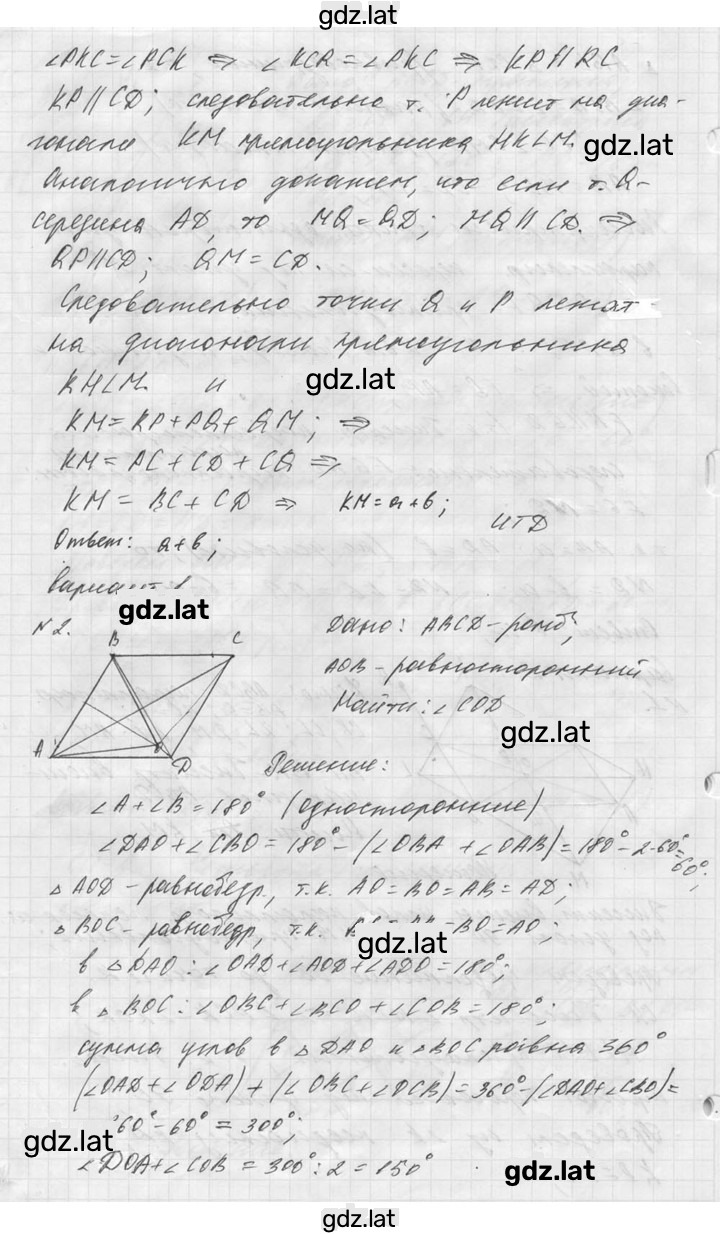 gdz.lat
∠PKC=∠PCK ⇒ ∠KCR=∠PKC ⇒ KP∥RC
KP∥CD; следовательно т. P лежит на диа-
гонали KM прямоугольника HKLM.
gdz.lat
Аналогично докажем, что если т. Q-
середина AD, то MQ=QD; MQ∥CD. ⇒
QP∥CD; QM=CD.
Следовательно точки Q и P лежат
на диагонали прямоугольника
KHLM. и
gdz.lat
KM=KP+PQ+QM; ⇒
KM=PC+CD+CQ ⇒
KM=BC+CD ⇒ KM=a+b;
ИТД
Ответ: a+b;
gdz.lat
№2.
B C
A D
Дано: ABCD-ромб;
AOB-равносторонний
Найти: ∠COD
gdz.lat
Решение:
∠A+∠B=180° (односторонние)
∠DAO+∠CBO=180°-(∠OBA+∠OAB)=180°-2·60°=
60°;
△AOD-равнобедр, т.к. AO=BO=AB=AD;
△BOC-равнобедр, т.к. =BO=AO;
gdz.lat
в △DAO: ∠OAD+∠AOD+∠ADO=180°;
в △BOC: ∠OBC+∠BCO+∠COB=180°;
сумма углов в △DAO и △BOC равна 360°
(∠OAD+∠ODA)+(∠OBC+∠OCB)=360°-(∠DAO+∠CBO)=
60°-60°=300°;
gdz.lat
∠DOA+∠COB=300°:2=150°
gdz.lat
gdz.lat